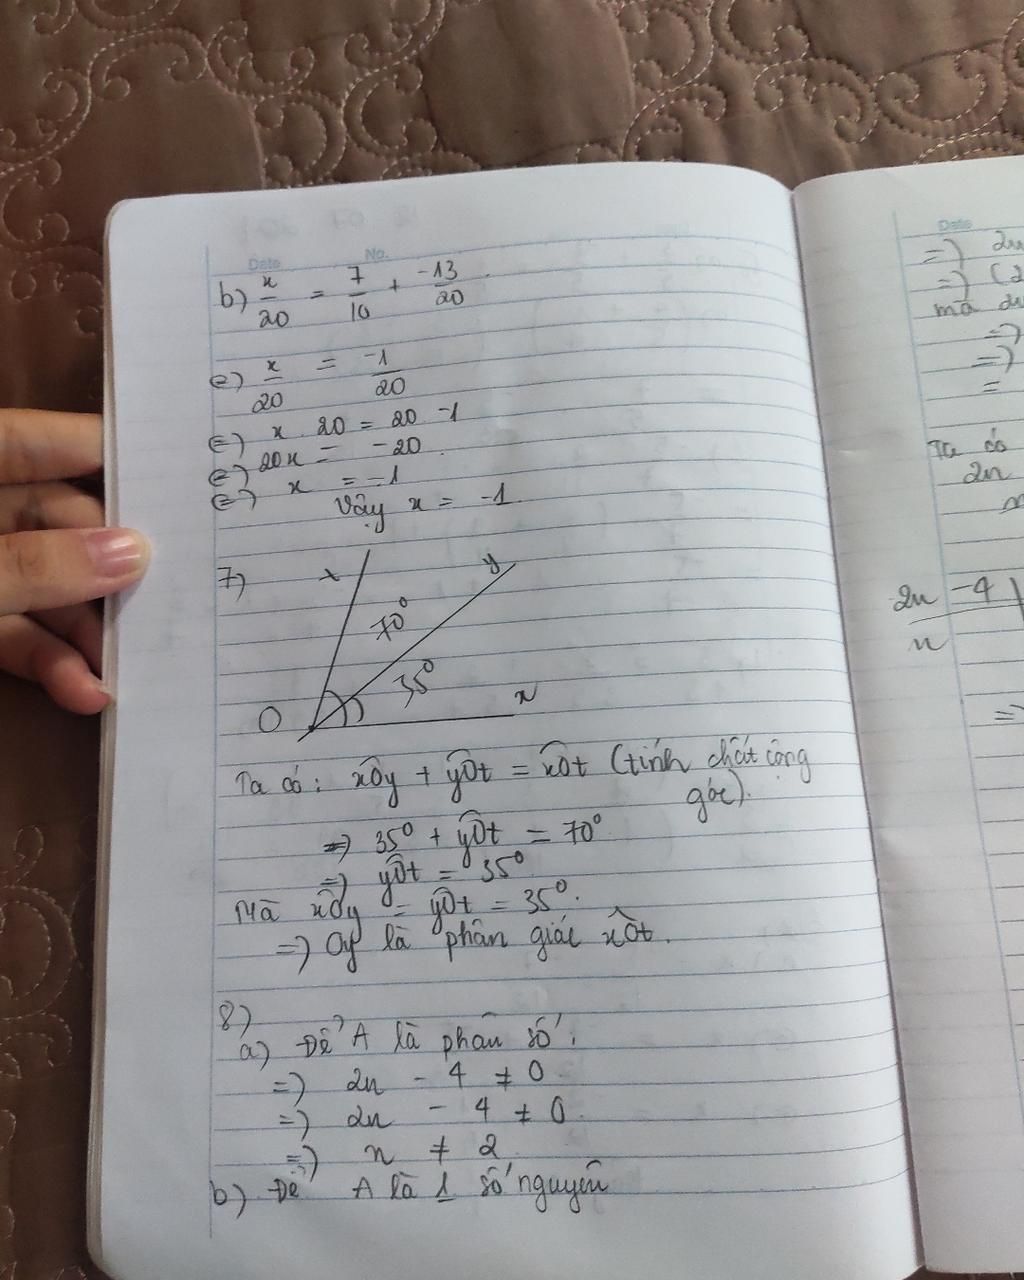 Date No.
b) x/20 = 7/10 + -13/20
(=) x/20 = -1/20
(=) x . 20 = 20 . -1
(=) 20x = -20
(=) x = -1
Vậy x = -1.
7)
t y
70°
35°
O x
Ta có: xÔy + yÔt = xÔt (tính chất cộng
góc).
=) 35° + yÔt = 70°
=) yÔt = 35°
Mà xÔy = yÔt = 35°.
=) Oy là phân giác xÔt.
8)
a) Để A là phân số:
=) 2n - 4 ≠ 0
=) 2n - 4 ≠ 0.
=) n ≠ 2
b) Để A là 1 số nguyên
Date
=) 2n
=) (2
mà 2n
=)
=)
=
Ta có
2n
2n - 4
n
=)